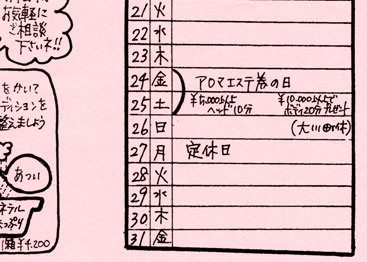 お気軽に
ご相談
下さいネ!!
をかいて
ディションを
整えましょう
あつい
ネラル
たっぷり
1箱¥4,200
21 火
22 水
23 木
24 金 アロマエステ券の日
25 土 ¥5,000以上で ヘッド10分 ¥10,000以上で ボディ20分プレゼント
26 日 (大川 休)
27 月 定休日
28 火
29 水
30 木
31 金